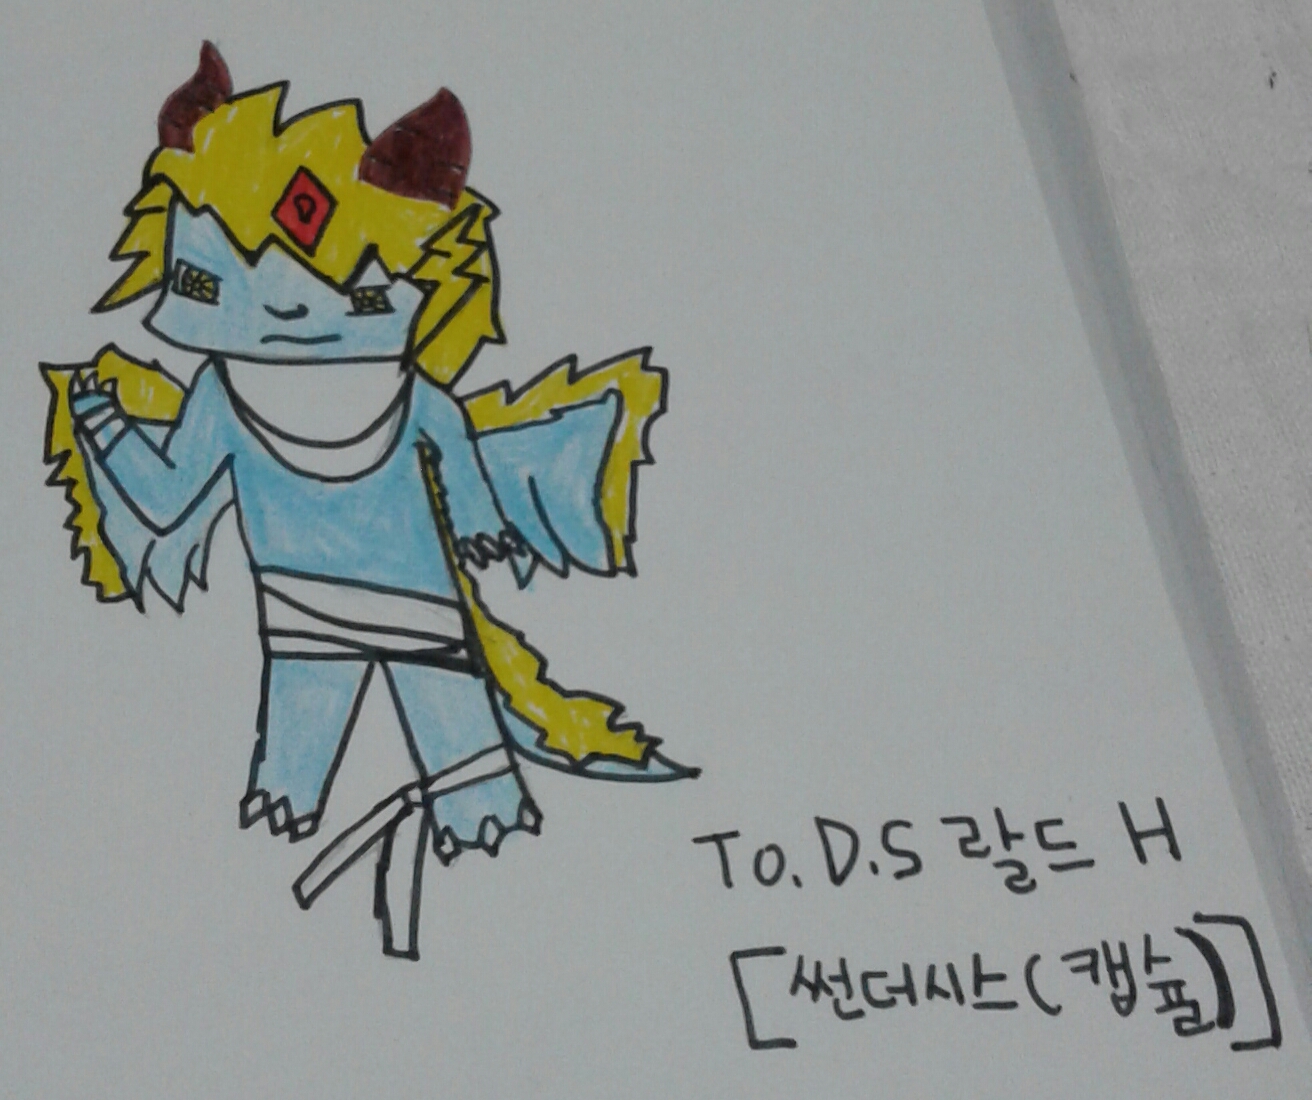 To. D.S 랄드 H
[썬더시스(캡슐)]